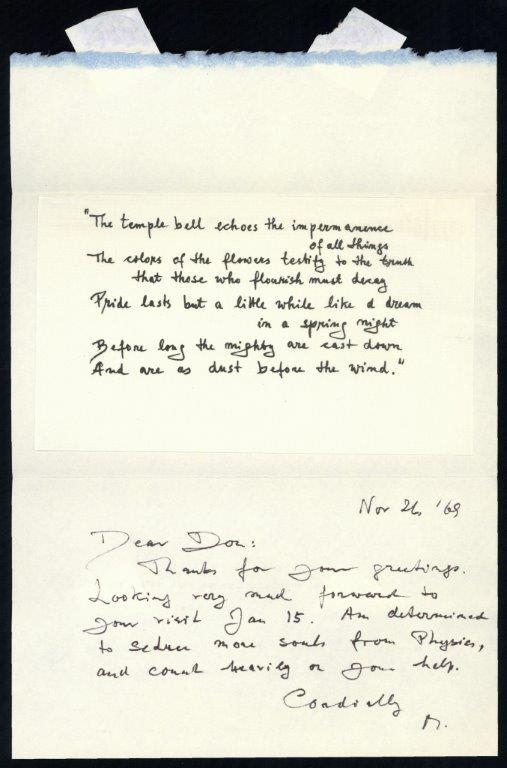 "The temple bell echoes the impermanence
of all things
The colors of the flowers testify to the truth
that those who flourish must decay
Pride lasts but a little while like a dream
in a spring night
Before long the mighty are cast down
And are as dust before the wind."
Nov 26, '69
Dear Don:
Thanks for your greetings.
Looking very much forward to
your visit Jan 15. Am determined
to seduce more souls from Physics,
and count heavily on your help.
Cordially
M.